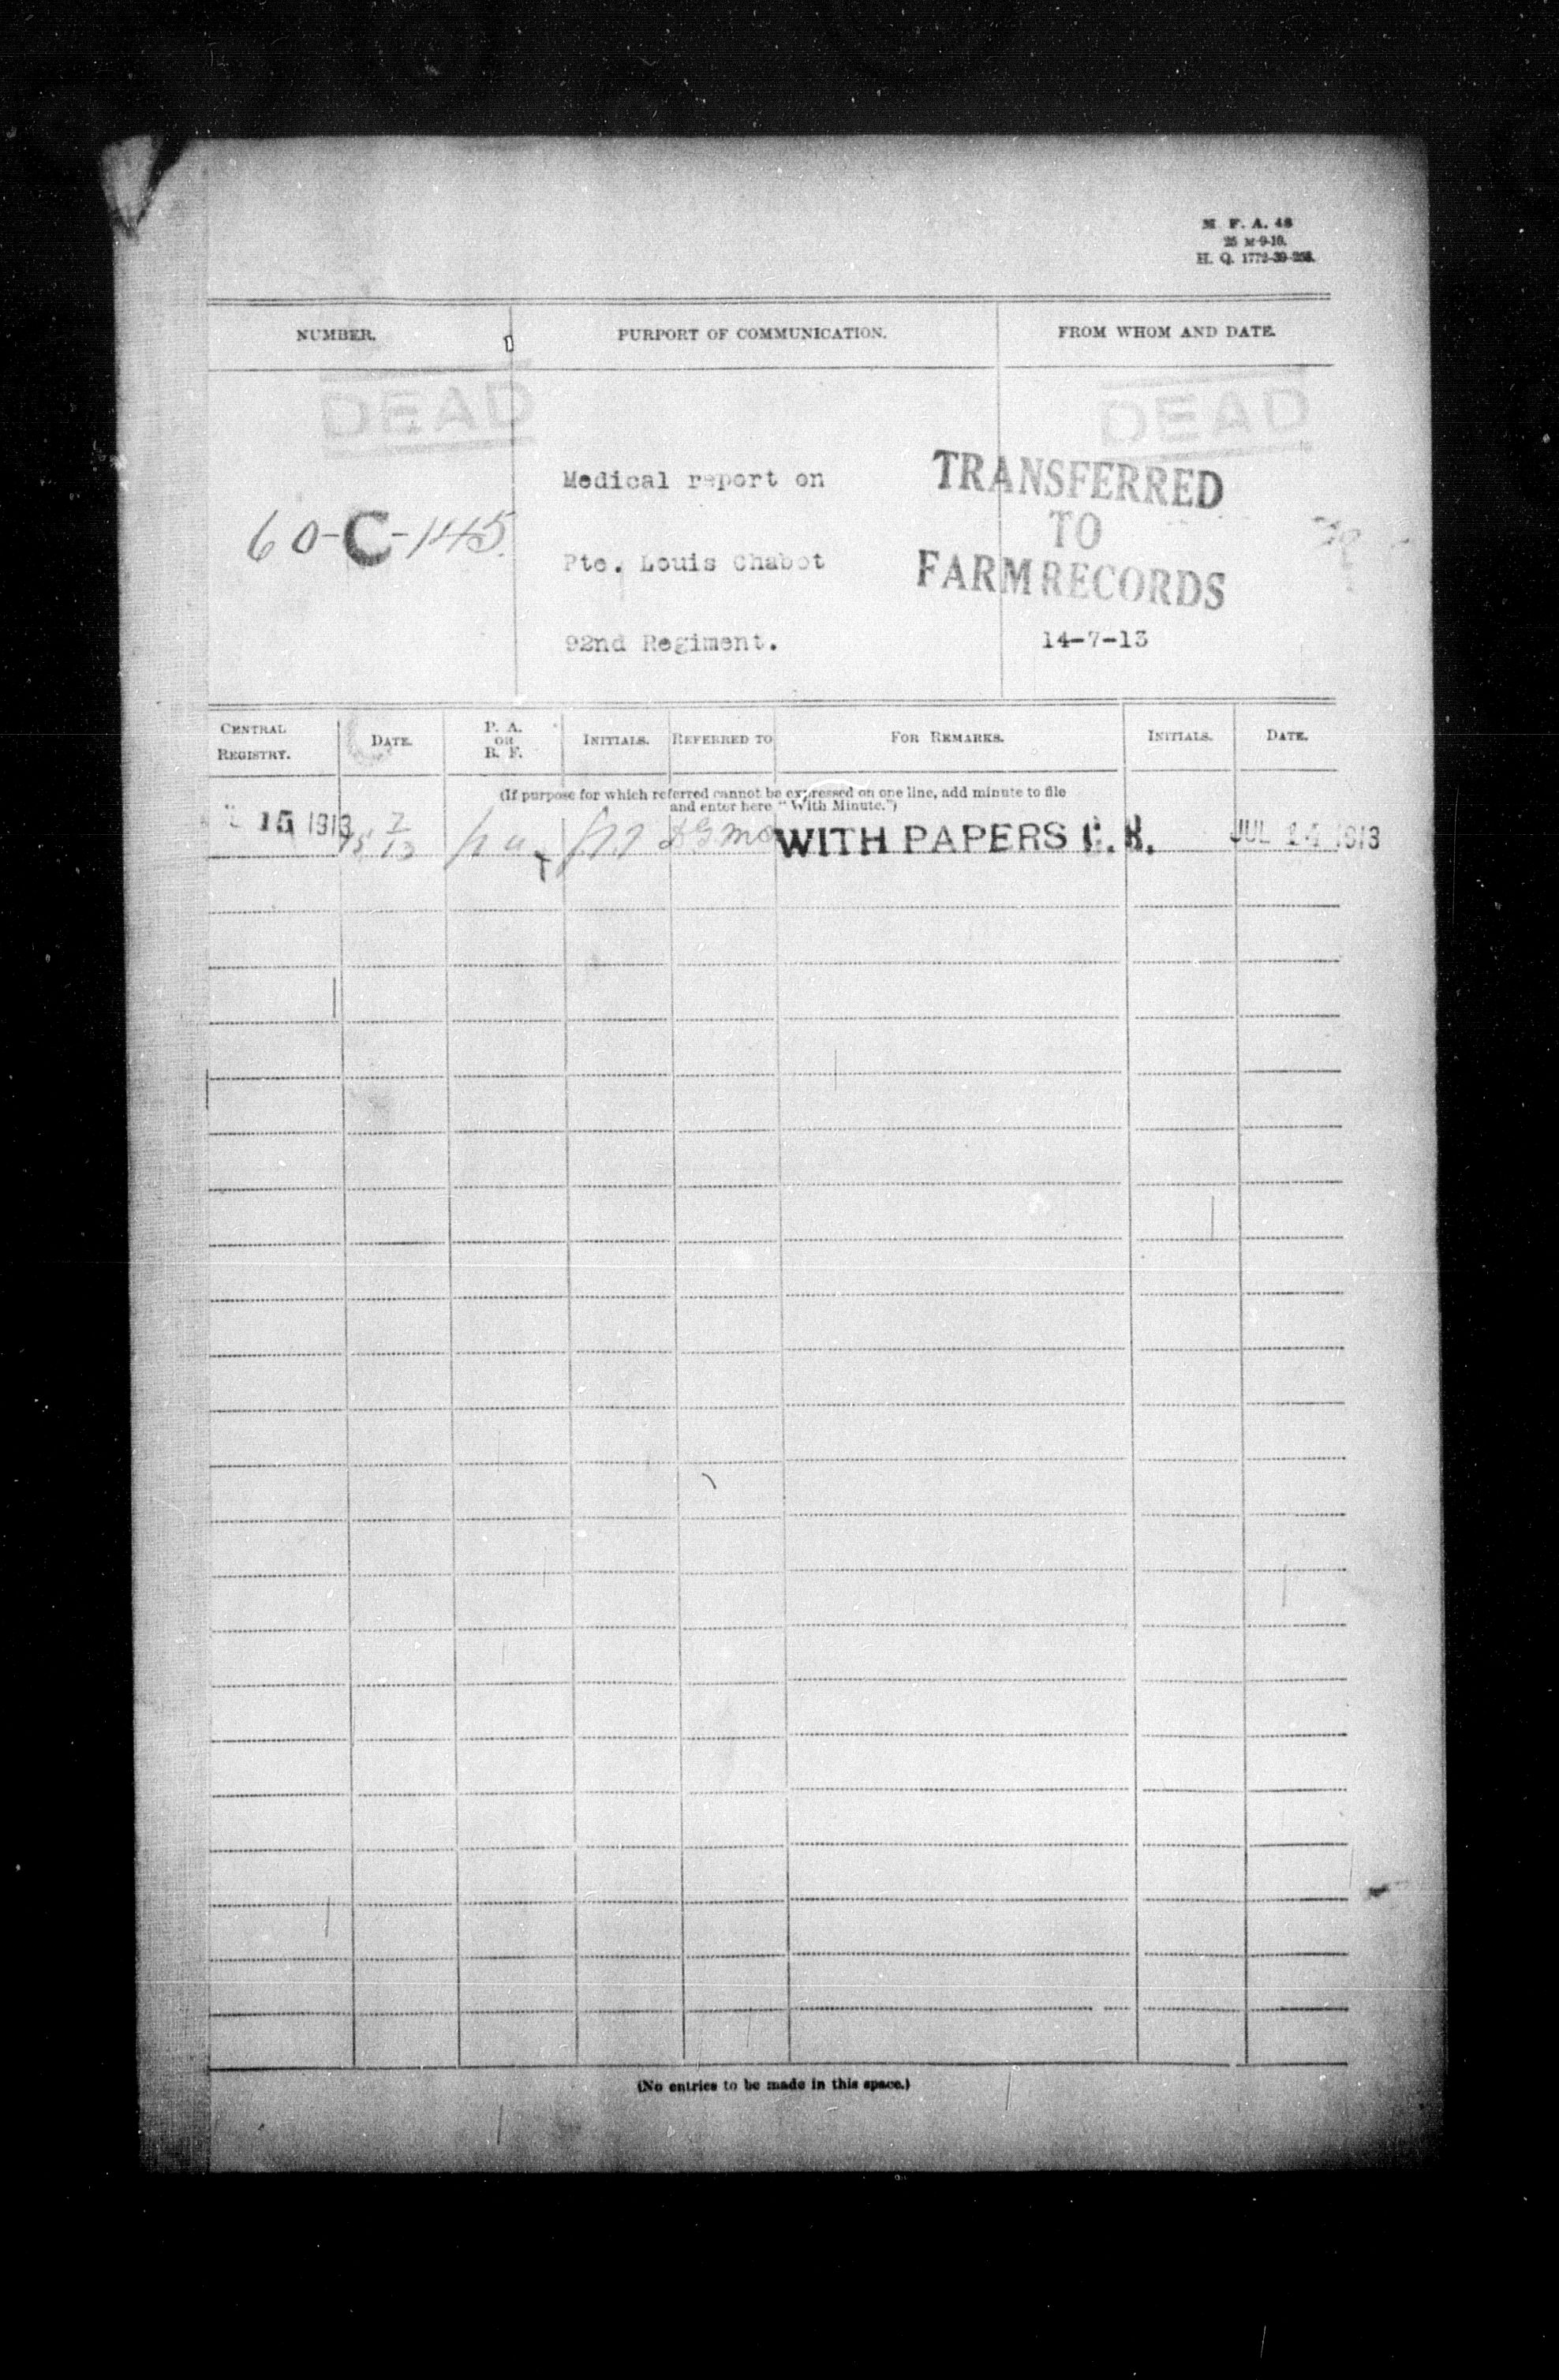 M. F. A. 48
25 M-9-10.
H. Q. 1772-39-258.
NUMBER.
PURPORT OF COMMUNICATION.
FROM WHOM AND DATE.
DEAD
DEAD
Medical report on
TRANSFERRED
TO
60-C-145.
Pte. Louis Chabot
FARM RECORDS
92nd Regiment.
14-7-13
CENTRAL REGISTRY.
DATE.
P. A. OR B. F.
INITIALS.
REFERRED TO
FOR REMARKS.
INITIALS.
DATE.
(If purpose for which referred cannot be expressed on one line, add minute to file
and enter here "With Minute.")
15 1913
15 7/13
pa
DGMS
WITH PAPERS C. R.
JUL 14 1913
(No entries to be made in this space.)